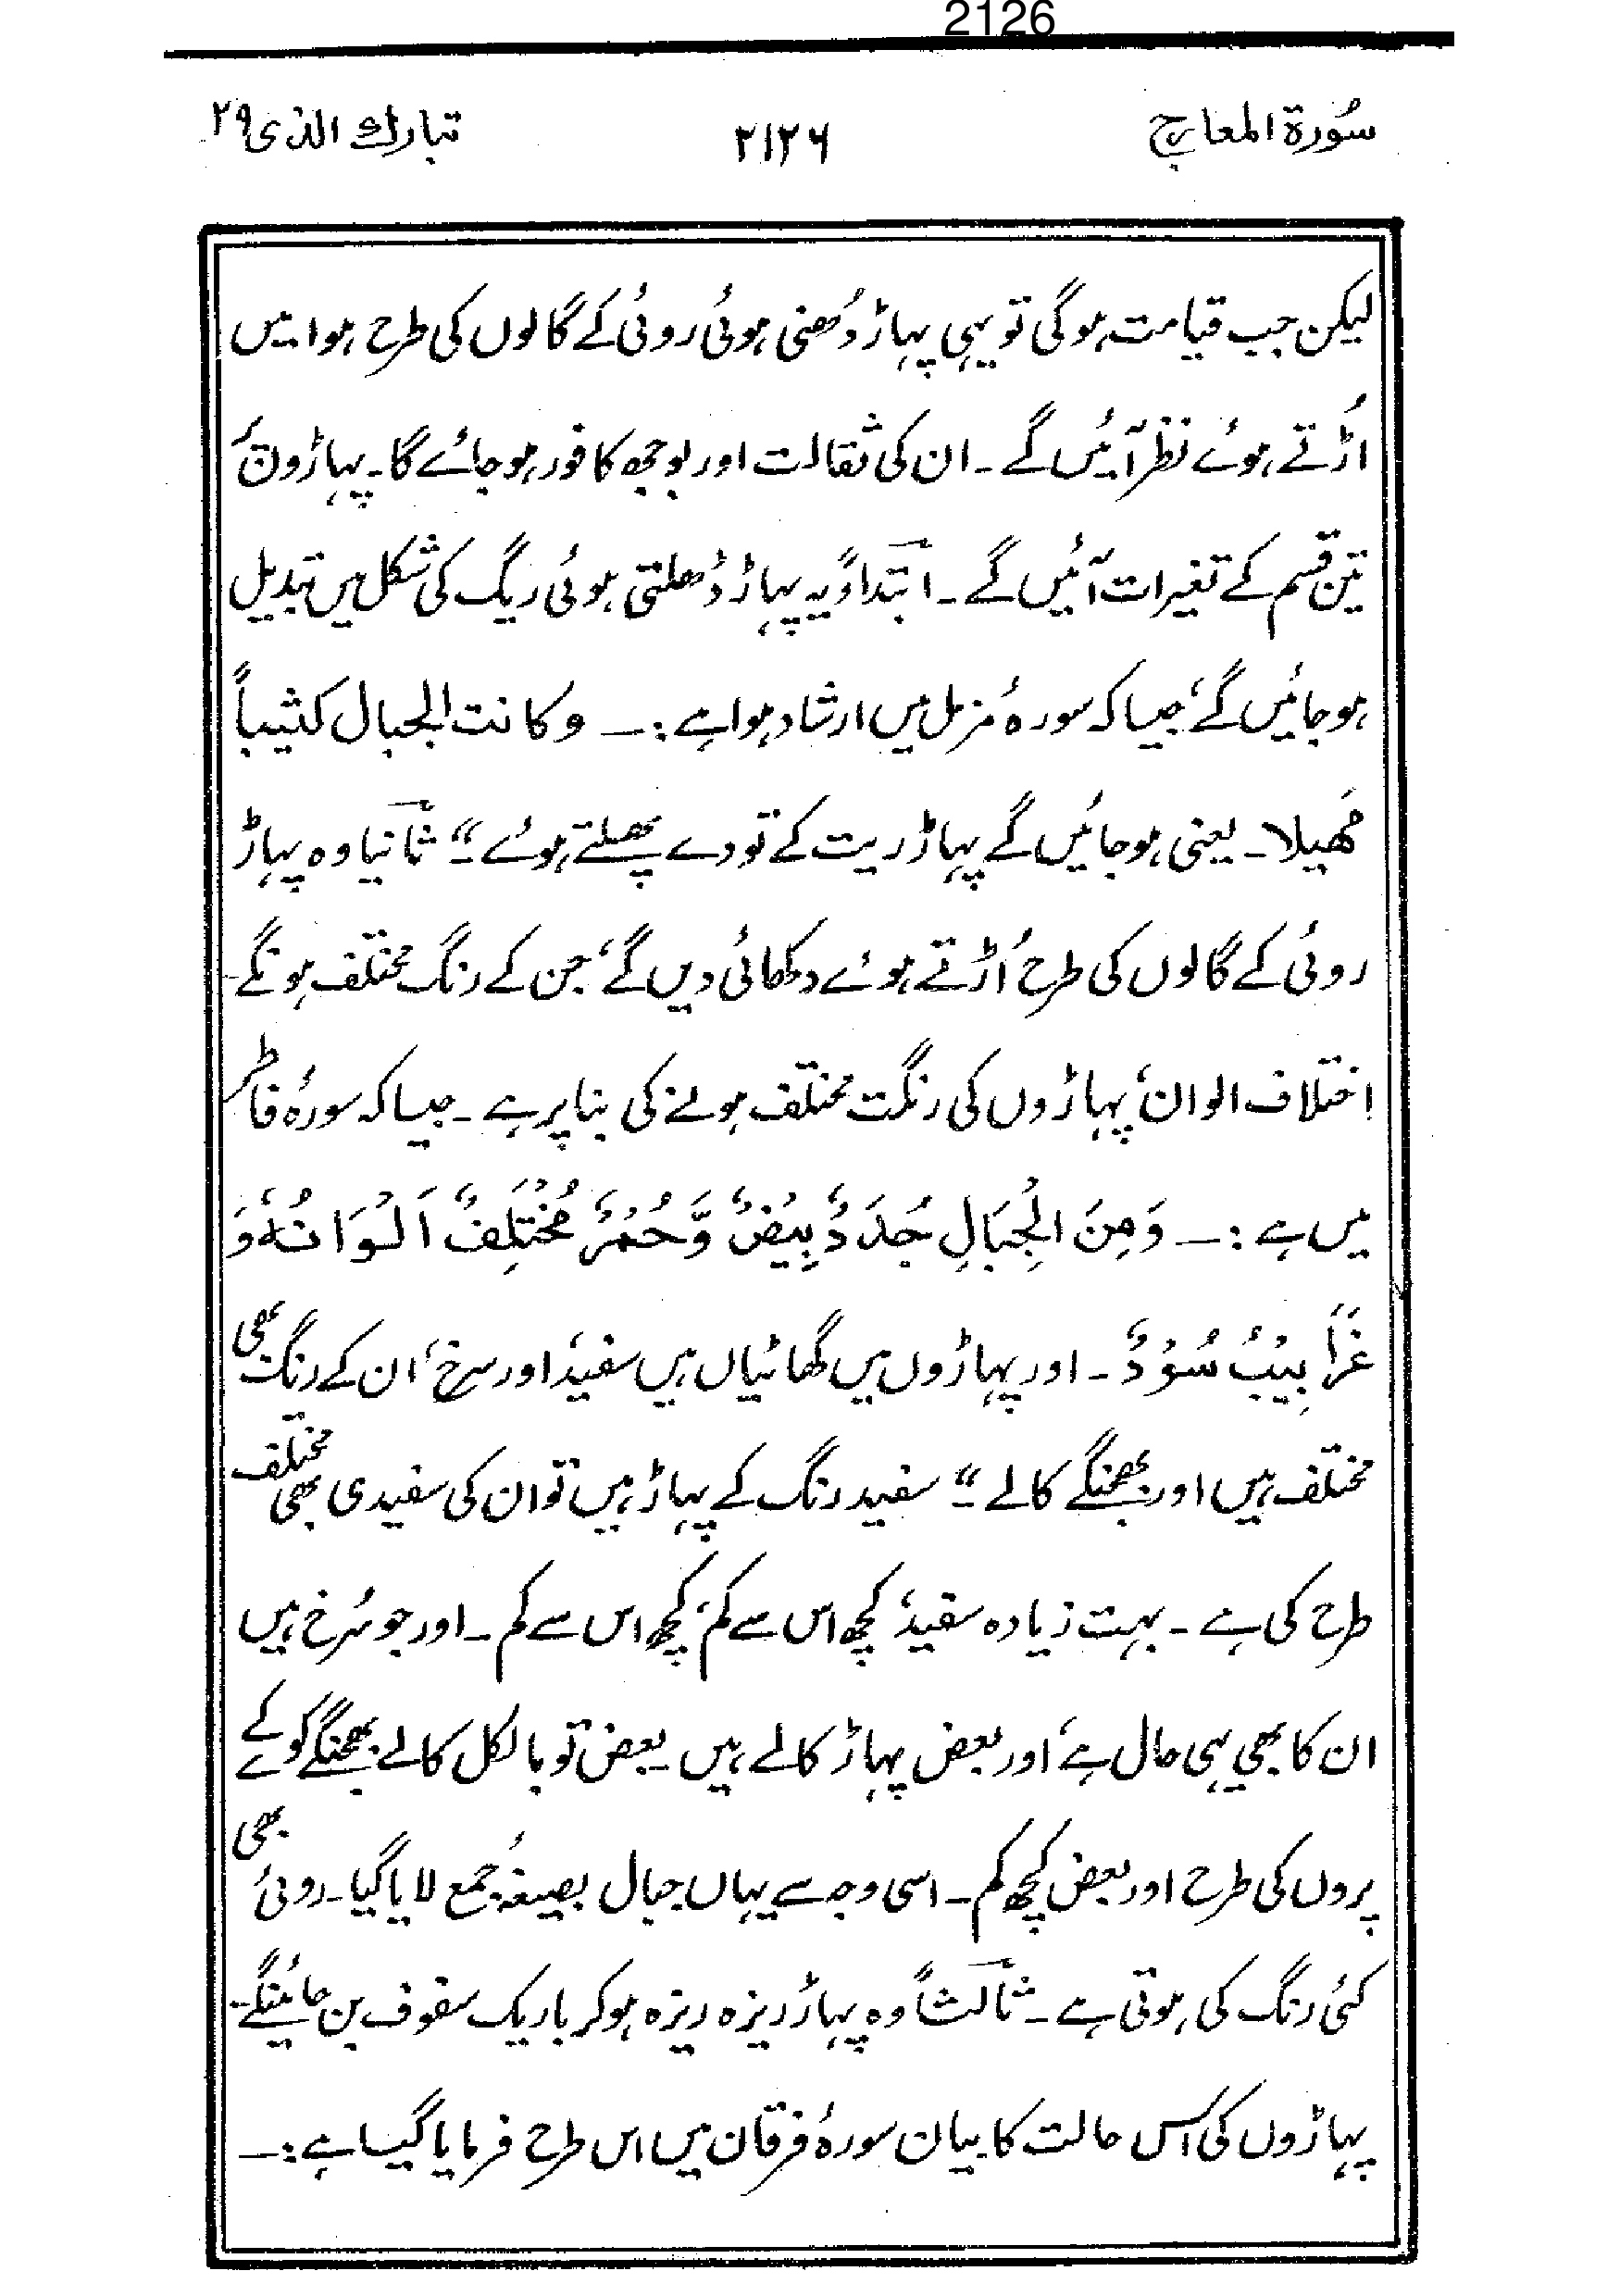 2126
سُورة المعارج ۲۱۲۶ تبارك الذی ۲۹
لیکن جب قیامت ہوگی تو یہی پہاڑ دُھنی ہوئی روئی کے گالوں کی طرح ہوا میں
اُڑتے ہوئے نظر آئیں گے ۔ ان کی ثقالت اور بوجھ کافور ہو جائے گا ۔ پہاڑوں
تین قسم کے تغیرات آئیں گے ۔ ابتداءً یہ پہاڑ ڈھلتی ہوئی ریگ کی شکل میں تبدیل
ہو جائیں گے، جیسا کہ سورۂ مزمل میں ارشاد ہوا ہے :— وكانت الجبال كثيباً
مَهيلا ۔ یعنی ہو جائیں گے پہاڑ ریت کے تودے پھسلتے ہوئے ۔“ ثانیا وہ پہاڑ
روئی کے گالوں کی طرح اُڑتے ہوئے دکھائی دیں گے، جن کے رنگ مختلف ہونگے ۔
اختلاف الوان، پہاڑوں کی رنگت مختلف ہونے کی بنا پر ہے ۔ جیسا کہ سورۂ فاطر
میں ہے :— وَمِنَ الْجِبَالِ جُدَدٌ بِيْضٌ وَّحُمْرٌ مُّخْتَلِفٌ اَلْوَانُهٗ وَ
غَرَابِيْبُ سُوْدٌ ۔ اور پہاڑوں میں گھاٹیاں ہیں سفید، اور سرخ، ان کے رنگ بھی
مختلف ہیں اور بھجنگے کالے ۔“ سفید رنگ کے پہاڑ ہیں تو ان کی سفیدی بھی مختلف
طرح کی ہے ۔ بہت زیادہ سفید، کچھ اس سے کم، کچھ اس سے کم ۔ اور جو سُرخ ہیں
ان کا بھی یہی حال ہے، اور بعض پہاڑ کالے ہیں ۔ بعض تو بالکل کالے بھجنگے کوے کے
پروں کی طرح اور بعض کچھ کم ۔ اسی وجہ سے یہاں جبال بصیغۂ جمع لایا گیا ۔ روئی بھی
کئی رنگ کی ہوتی ہے ۔ ثالثاً وہ پہاڑ ریزہ ریزہ ہو کر باریک سفوف بن جائینگے ۔
پہاڑوں کی اس حالت کا بیان سورۂ فرقان میں اس طرح فرمایا گیا ہے :—